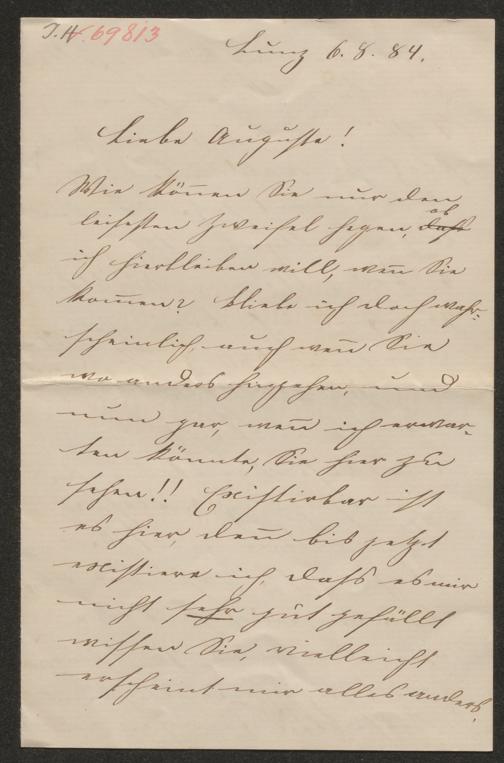 J.N. 69813
Lunz 6. 8. 84.
Liebe Auguste!
Wie können Sie nur den
leisesten Zweifel hegen, daß ob
ich hierbleiben will, wen̄ Sie
kom̄en? bliebe ich doch wahr-
scheinlich, auch wen̄ Sie
wo anders hingehen, und
nun gar, wen̄ ich erwar-
ten könnte, Sie hier zu
sehen!! Existirbar ist
es hier, den̄ bis jetzt
existiere ich, dass es mir
nicht sehr gut gefällt
wissen Sie, vielleicht
erscheint mir alles anders,